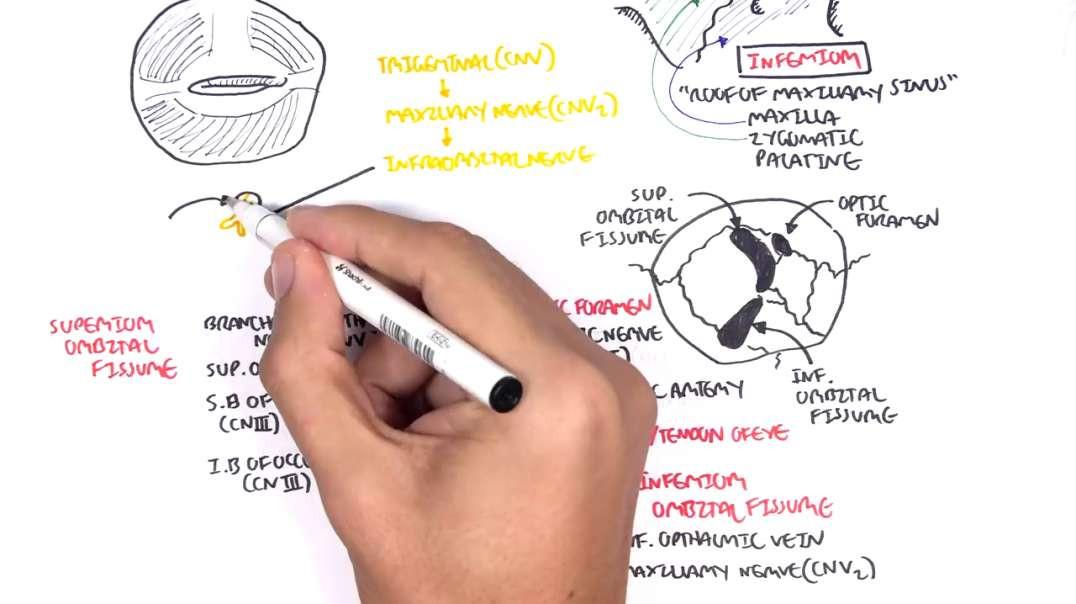 TRIGEMINAL (CNV)
MAXILLARY NERVE (CNV2)
INFRAORBITAL NERVE
INFERIOR
"ROOF OF MAXILLARY SINUS"
MAXILLA
ZYGOMATIC
PALATINE
SUP.
ORBITAL
FISSURE
OPTIC
FORAMEN
INF.
ORBITAL
FISSURE
SUPERIOR
ORBITAL
FISSURE
SUP.
S.B OF
(CNIII)
I.B OF
(CNIII)
FORAMEN
NERVE
ARTERY
TENDON OF EYE
INFERIOR
ORBITAL FISSURE
OPTHALMIC VEIN
MAXILLARY NERVE (CNV2)